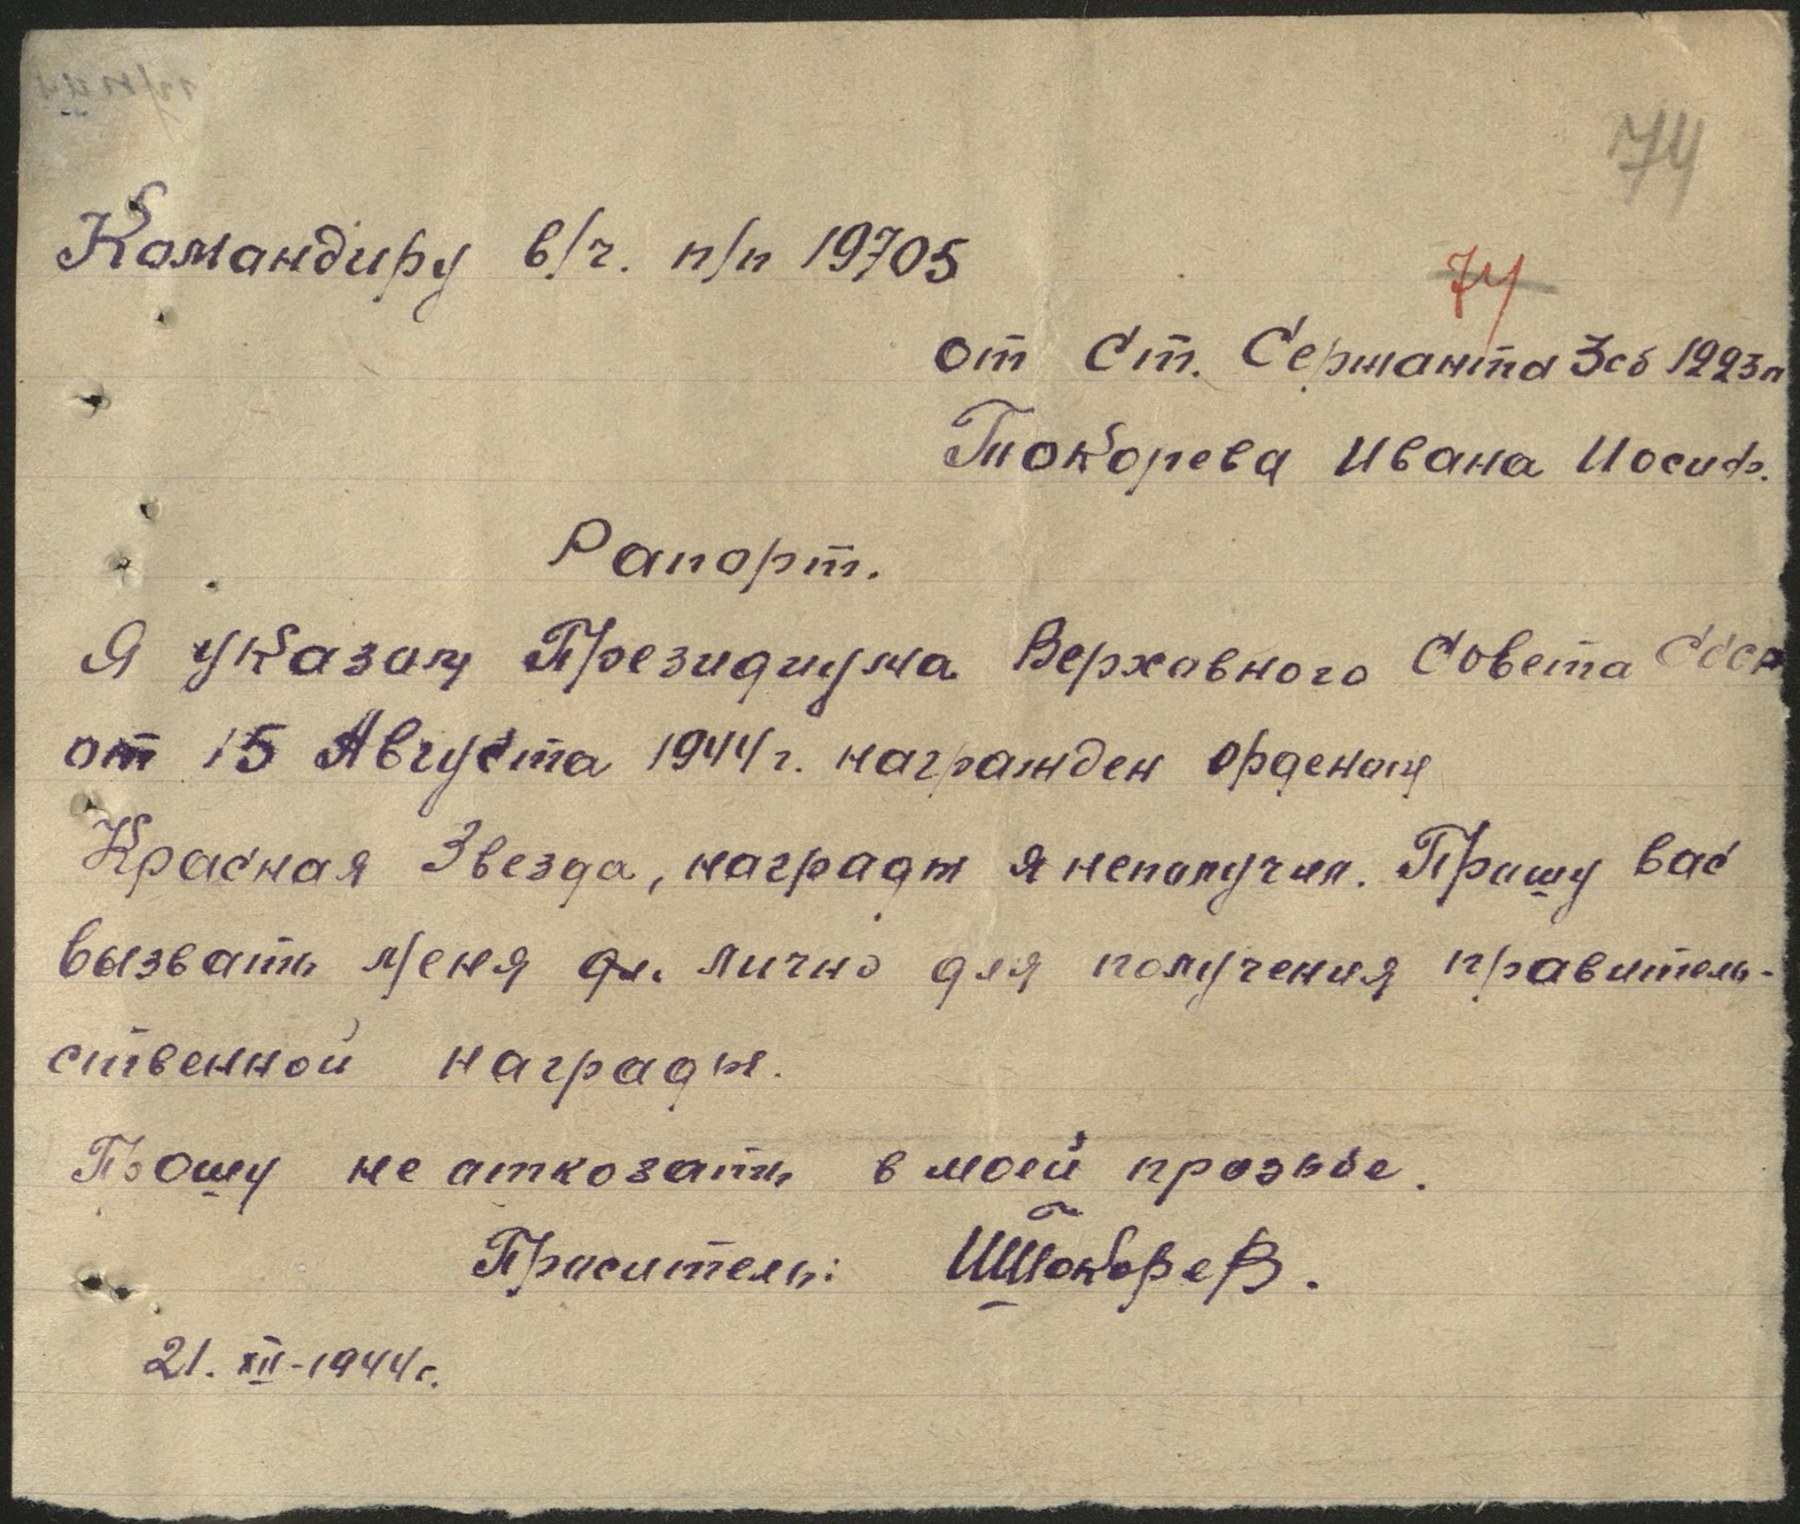 74
Командиру в/ч. п/п 19705
74
от Ст. Сержанта 3сб 1223п
Токорева Ивана Иосиф.
Рапорт.
Я указом Президиума Верховного Совета СССР
от 15 Августа 1944г. награжден орденом
Красная Звезда, награды я неполучил. Прашу вас
вызвать меня дл. лично для получения правитель-
ственной награды.
Прошу не атказать в моей прозьбе.
Праситель: ИТокорев.
21. XII-1944г.